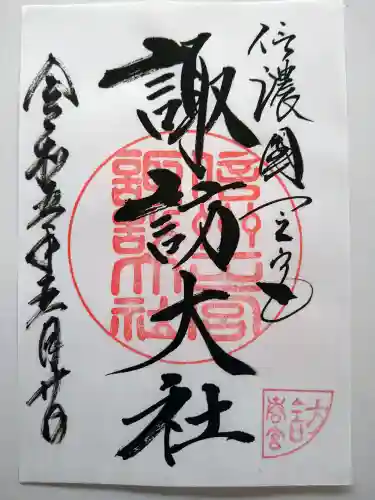 信濃國一之宮
諏訪大社
令和五年五月廿日
信濃一之宮
諏訪大社
諏訪
春宮